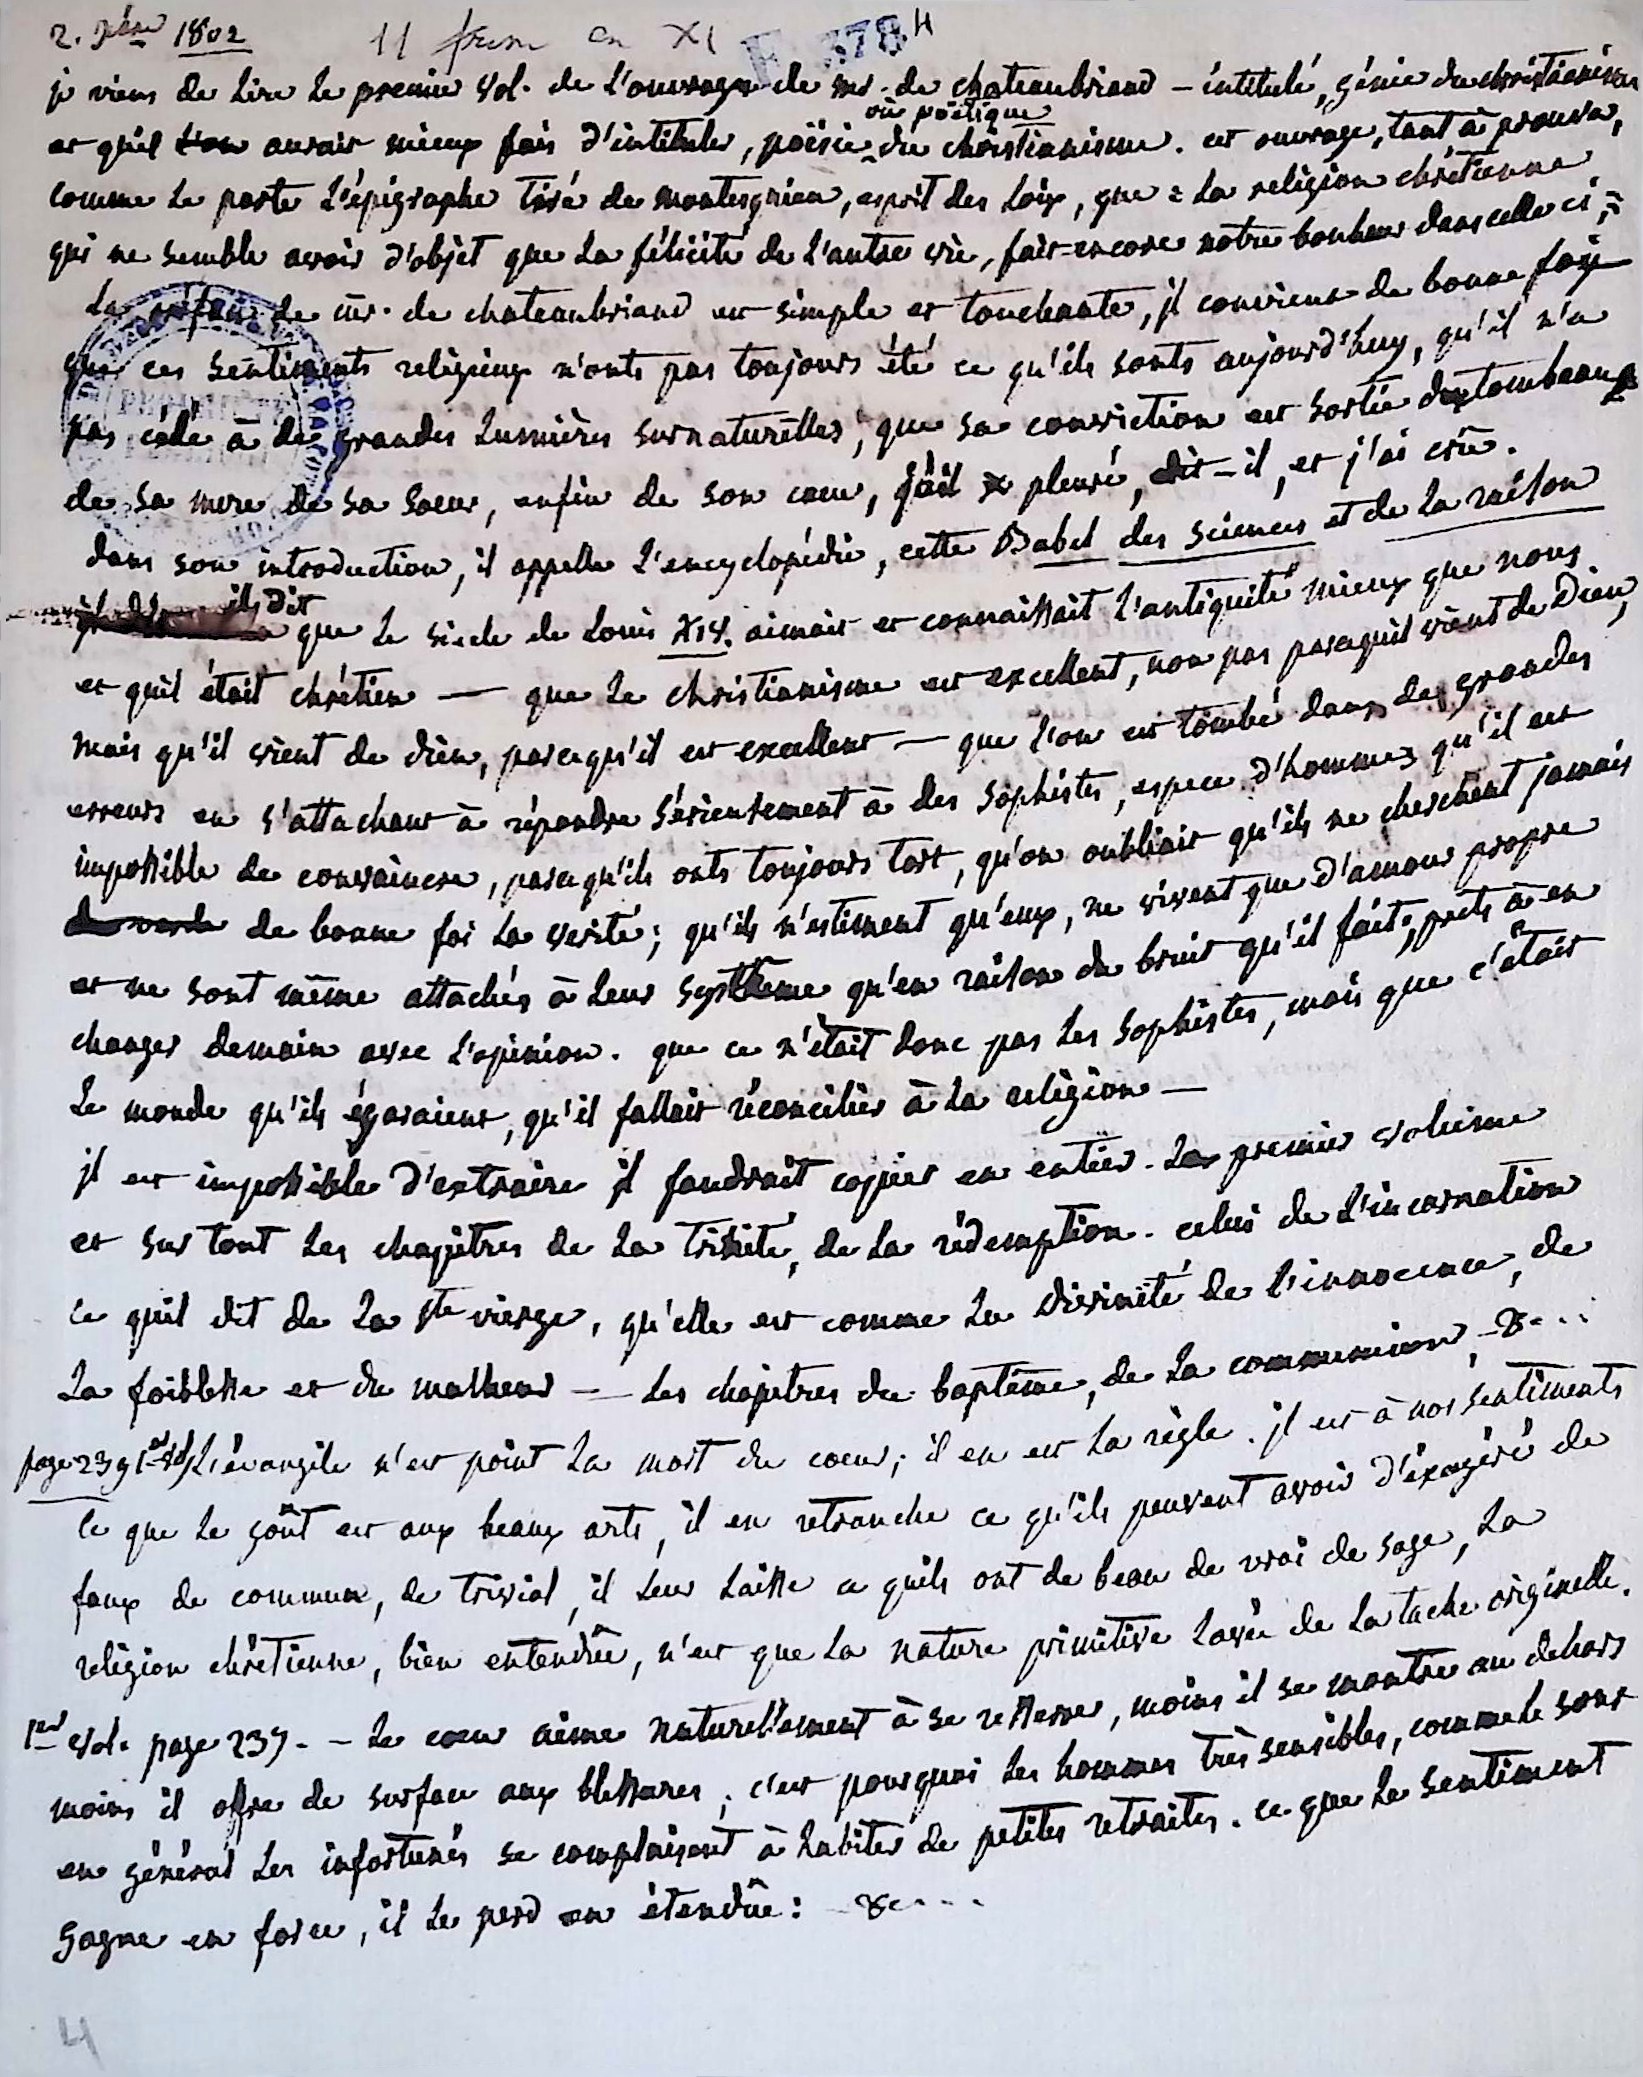 2. Xbre 1802 11 frim an XI F 378 4
je viens de lire le premier vol. de l'ouvrage de mr. de chateaubriand – intitulé, génie du christianisme
et qu'il aurait mieux fait d'intituler, poësie ou poëtique du christianisme. cet ouvrage, tend à prouver,
comme le porte l'épigraphe tiré de montesquieu, esprit des loix, que = la religion chrétienne
qui ne semble avoir d'objèt que la félicité de l'autre vie, fait encore notre bonheur dans celle ci, =
la préface de mr. de chateaubriand est simple et touchante, jl convient de bonne foy
que ces sentiments religieux n'onts pas toujours été ce qu'ils sonts aujourd'huy, qu'il n'a
pas cédé à de grandes lumières surnaturelles, que sa conviction est sortie des tombeaux
de sa mere de sa soeur, enfin de son coeur, qu'il a pleuré, dit-il, et j'ai crû.
dans son introduction, il appelle l'encyclopédie, cette Babel des sciences et de la raison
il dit que le siecle de Louis XIV. aimait et connaissait l'antiquité mieux que nous
et quil était chrétien — que le christianisme est excellent, non pas parcequil vient de Dieu,
mais qu'il vient de dieu, parcequ'il est excellent — que l'on est tombé dans des grandes
erreurs en s'attachant à répondre sérieusement à des sophistes, espece d'hommes qu'il est
impossible de convaincre, parcequ'ils onts toujours tort, qu'on oubliait qu'ils ne cherchent jamais
de bonne foi la verité; qu'ils n'estiment qu'eux, ne vivent que d'amour propre
et ne sont même attachés à leur systhème qu'en raison du bruit qu'il fait; prets à en
changer demain avec l'opinion. que ce n'était donc pas les sophistes, mais que c'était
le monde qu'ils égaraient, qu'il fallait réconcilier à la religion —
jl est impossible d'extraire jl faudrait copier en entier. le premier volume
et sur tout les chapitres de la trinité, de la rédemption. celui de l'incarnation
ce quil dit de la Ste vierge, qu'elle est comme la divinité de l'innocence, de
la foiblesse et du malheur — les chapitres du baptême, de la communion, &c...
page 239 1er vol, L'évangile n'est point la mort du coeur; il en est la règle. jl est à nos sentiments
ce que le goût est aux beaux arts, il en retranche ce qu'ils peuvent avoir d'éxagéré de
faux de commun, de trivial, il leur laisse ce quils ont de beau de vrai de sage, la
religion chrétienne, bien entendüe, n'est que la nature primitive lavée de la tache originelle.
1er vol. page 237. – le coeur aime naturellement à se resserrer, moins il se montre au dehors
moins il offre de surface aux blessures; c'est pourquoi les hommes très sensibles, comme le sont
en général les infortunés se complaisent à habiter de petites retraites. ce que le sentiment
gagne en force, il le perd en étendüe: &c...
4